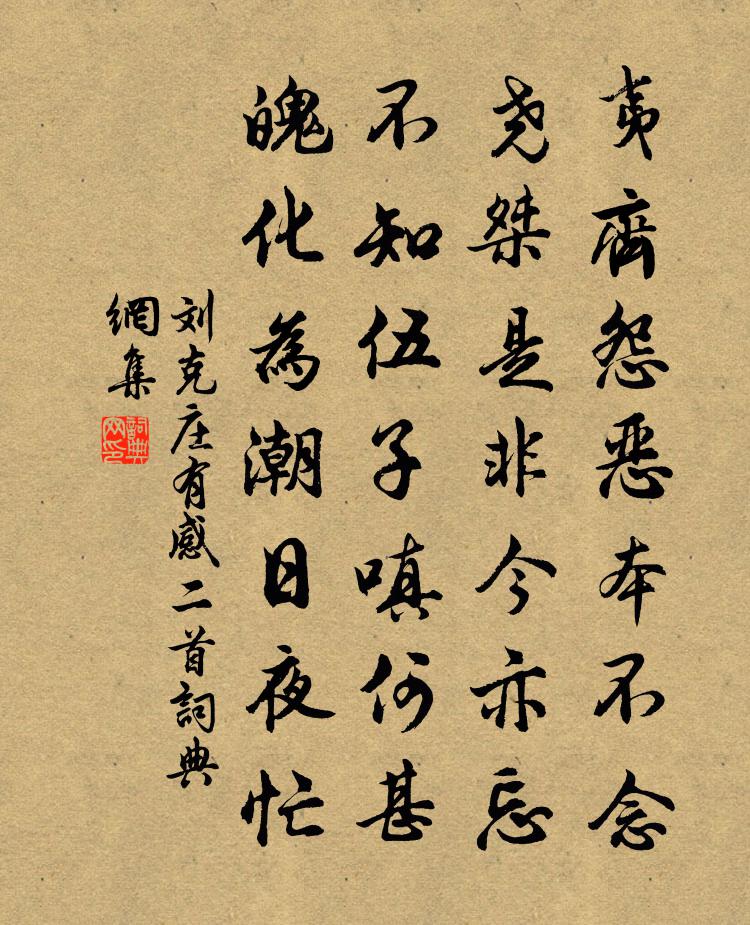 夷齊怨惡本不念
堯桀是非今亦忘
不知伍子嗔何甚
魄化為潮日夜忙
刘克庄有感二首詞典
網集
詞典
网印